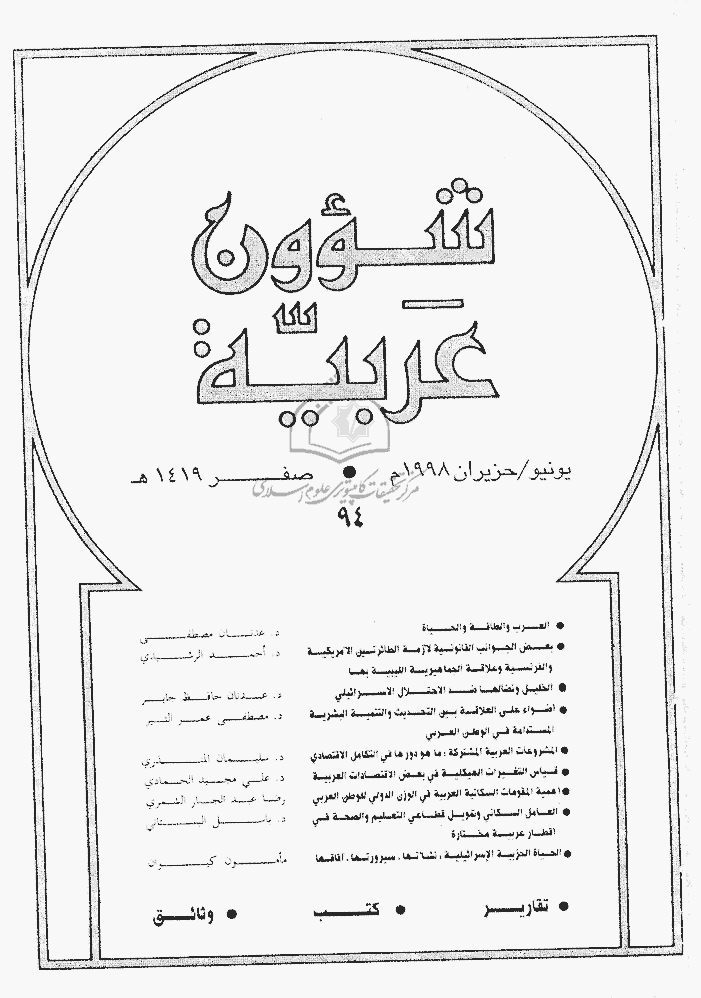 شؤون
عَربيّة
يونيو/حزيران ١٩٩٨م ● صفـر ١٤١٩ هـ
مركز تحقیقات کامپیوتری علوم اسلامی
٩٤
● العرب والطاقة والحياة د. عدنان مصطفى
● بعض الجوانب القانونية لأزمة الطائرتين الأمريكية د. أحمد الرشيدي
والفرنسية وعلاقة الجماهيرية الليبية بها
● الخليل ونضالها ضد الاحتلال الاسرائيلي د. عدنان حافظ جابر
● أضواء على العلاقة بين التحديث والتنمية البشرية د. مصطفى عمر التير
المستدامة في الوطن العربي
● المشروعات العربية المشتركة : ما هو دورها في التكامل الاقتصادي د. سليمان المنذري
● قياس التغيرات الهيكلية في بعض الاقتصادات العربية د. علي مجيد الحمادي
● أهمية المقومات السكانية العربية في الوزن الدولي للوطن العربي رضا عبد الجبار الشمري
● العامل السكاني وتمويل قطاعي التعليم والصحة في د. باسل البستاني
أقطار عربية مختارة
● الحياة الحزبية الإسرائيلية : نشأتها . سيرورتها . آفاقها مأمون كيوان
● تقارير ● كتب ● وثائق